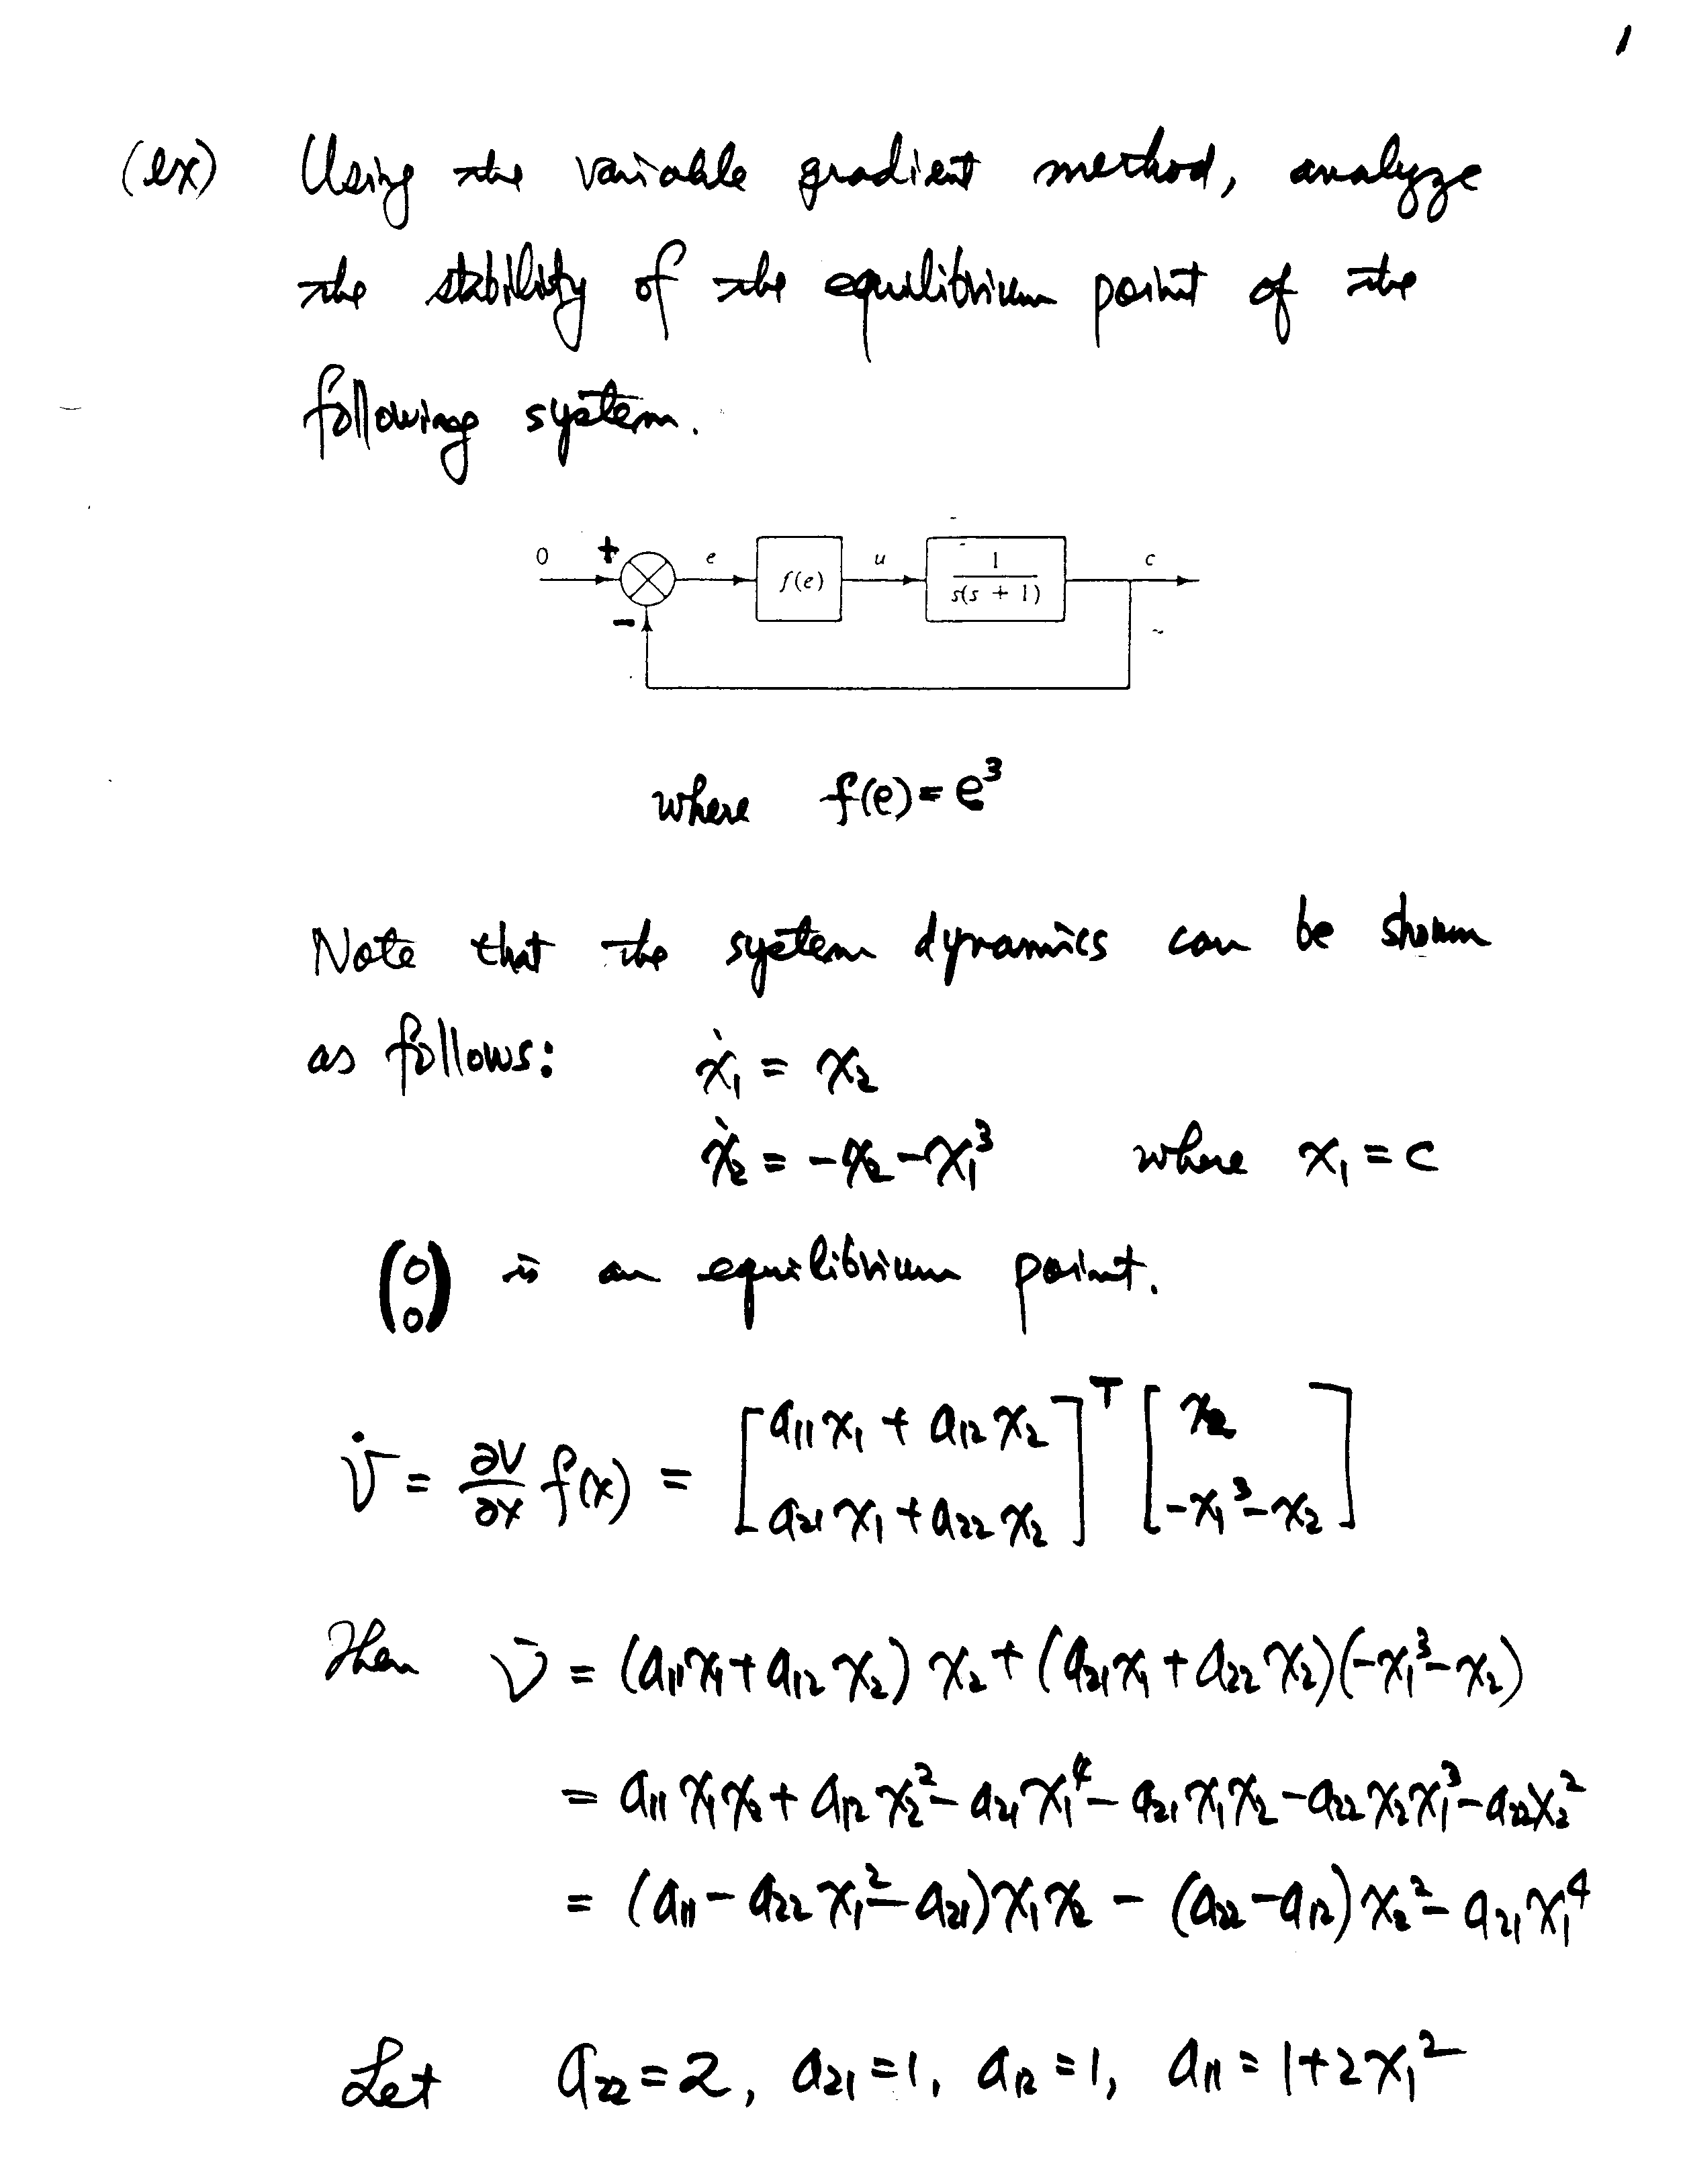 1
(ex) Using the variable gradient method, analyze
the stability of the equilibrium point of the
following system.
0 + e f(e) u 1/s(s + 1) c
-
where f(e) = e³
Note that the system dynamics can be shown
as follows: ẋ₁ = x₂
ẋ₂ = -x₂ - x₁³ where x₁ = c
(0 0) is an equilibrium point.
V̇ = ∂V/∂x f(x) = [a₁₁x₁ + a₁₂x₂ a₂₁x₁ + a₂₂x₂]ᵀ [x₂ -x₁³-x₂]
Then V̇ = (a₁₁x₁ + a₁₂x₂) x₂ + (a₂₁x₁ + a₂₂x₂)(-x₁³-x₂)
= a₁₁x₁x₂ + a₁₂x₂² - a₂₁x₁⁴ - a₂₁x₁x₂ - a₂₂x₂x₁³ - a₂₂x₂²
= (a₁₁ - a₂₂x₁² - a₂₁)x₁x₂ - (a₂₂ - a₁₂)x₂² - a₂₁x₁⁴
Let a₂₂ = 2, a₂₁ = 1, a₁₂ = 1, a₁₁ = 1+2x₁²